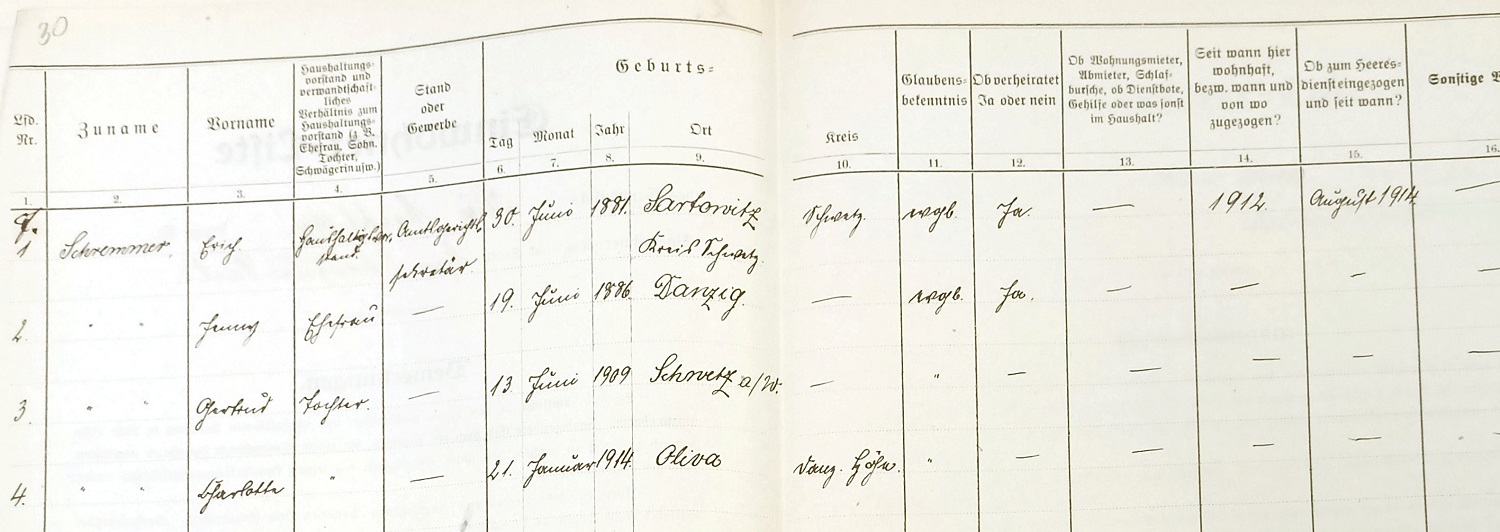 30
Geburts=
Lfd. Nr.
Zuname
Vorname
Haushaltungs-
vorstand und
verwandtschaft-
liches
Verhältnis zum
Haushaltungs-
vorstand (z. B.
Ehefrau, Sohn,
Tochter,
Schwägerin usw.)
Stand
oder
Gewerbe
Tag
Monat
Jahr
Ort
Kreis
Glaubens-
bekenntnis
Ob verheiratet
Ja oder nein
Ob Wohnungsmieter,
Abmieter, Schlaf-
bursche, ob Dienstbote,
Gehilfe oder was sonst
im Haushalt?
Seit wann hier
wohnhaft,
bezw. wann und
von wo
zugezogen?
Ob zum Heeres-
dienst eingezogen
und seit wann?
Sonstige
1. 2. 3. 4. 5. 6. 7. 8. 9. 10. 11. 12. 13. 14. 15. 16.
1 Schremmer, Erich. Amtsgerichts 30. Juni 1881. Sartowitz Schwetz. evgl. Ja. — 1912. August 1914 —
sekretär. Kreis Schwetz.
2. " " Jenny Ehefrau — 19. Juni 1886. Danzig. — evgl. Ja. — — — —
3 " " Gertrud Tochter. — 13. Juni 1909 Schwetz a/W. — " — — — — —
4. " " Charlotte " — 21. Januar 1914. Oliva Danz. Höhe. " — — — — —